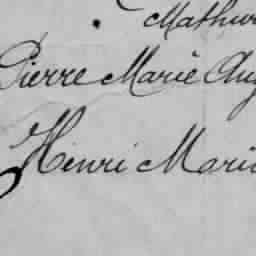 Mathur
Pierre Marie Aug
Henri Marie